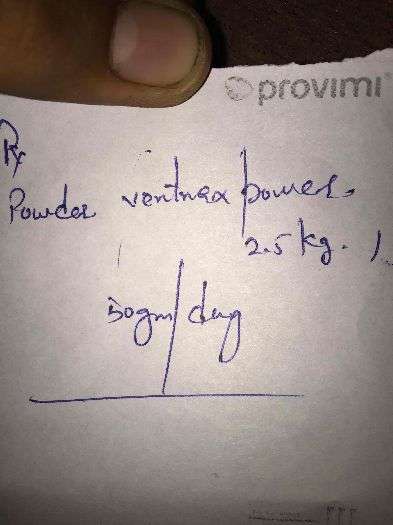 provimi
Rx
Powder ventrax power
2.5 kg.
50gm/day